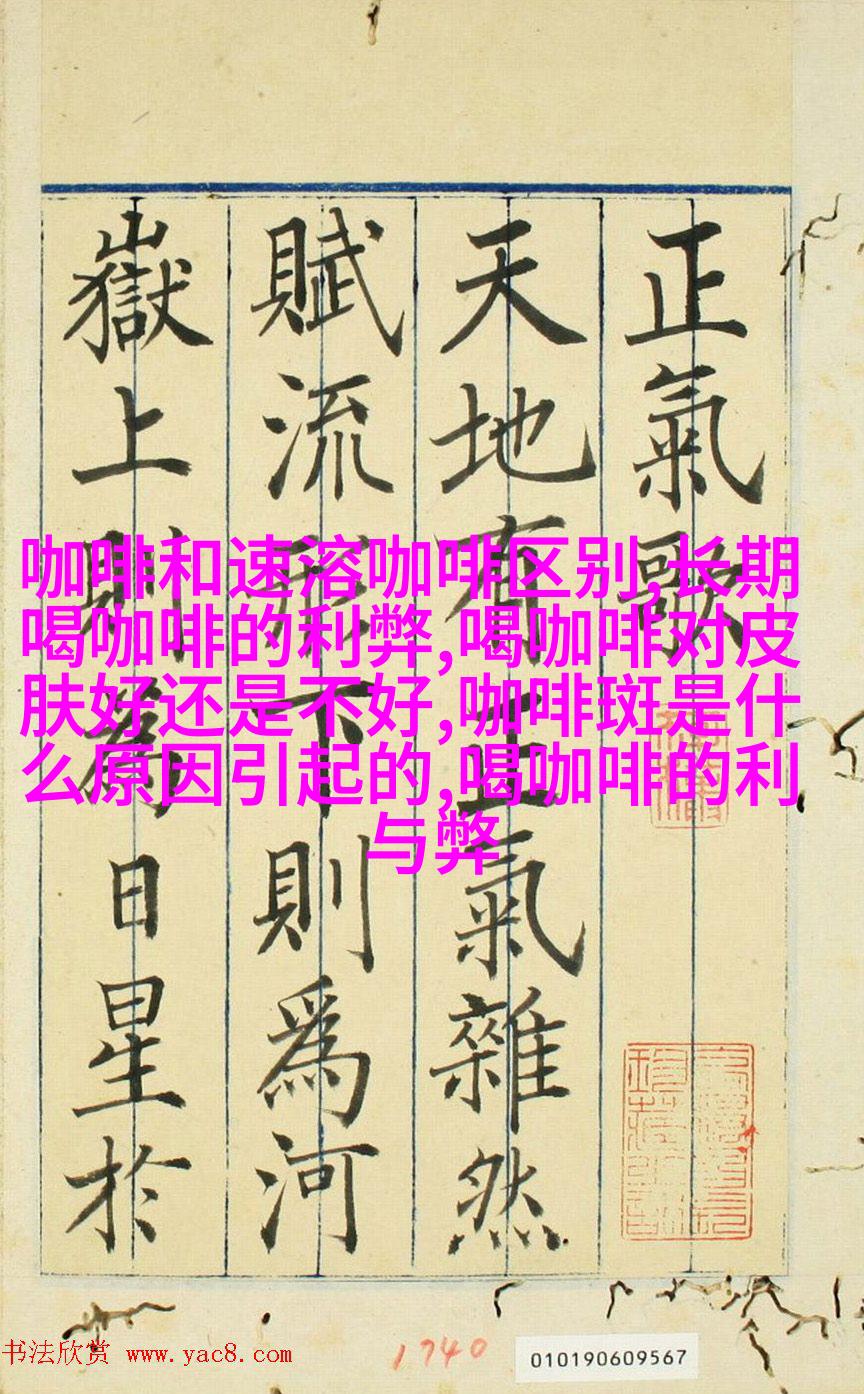 正氣歌
天地有正氣雜然
賦流形下則爲河
嶽上則爲日星於
咖啡和速溶咖啡区别,长期
喝咖啡的利弊,喝咖啡对皮
肤好还是不好,咖啡斑是什
么原因引起的,喝咖啡的利
与弊
书法欣赏 www.yac8.com
1740
010190609567